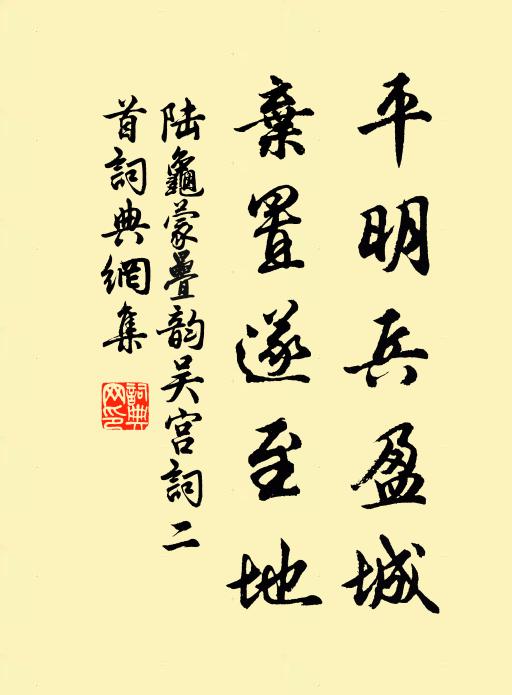 平明兵盈城
棄置遂至地
陸龜蒙疊韵吴宫詞二
首詞典網集
詞典
网印